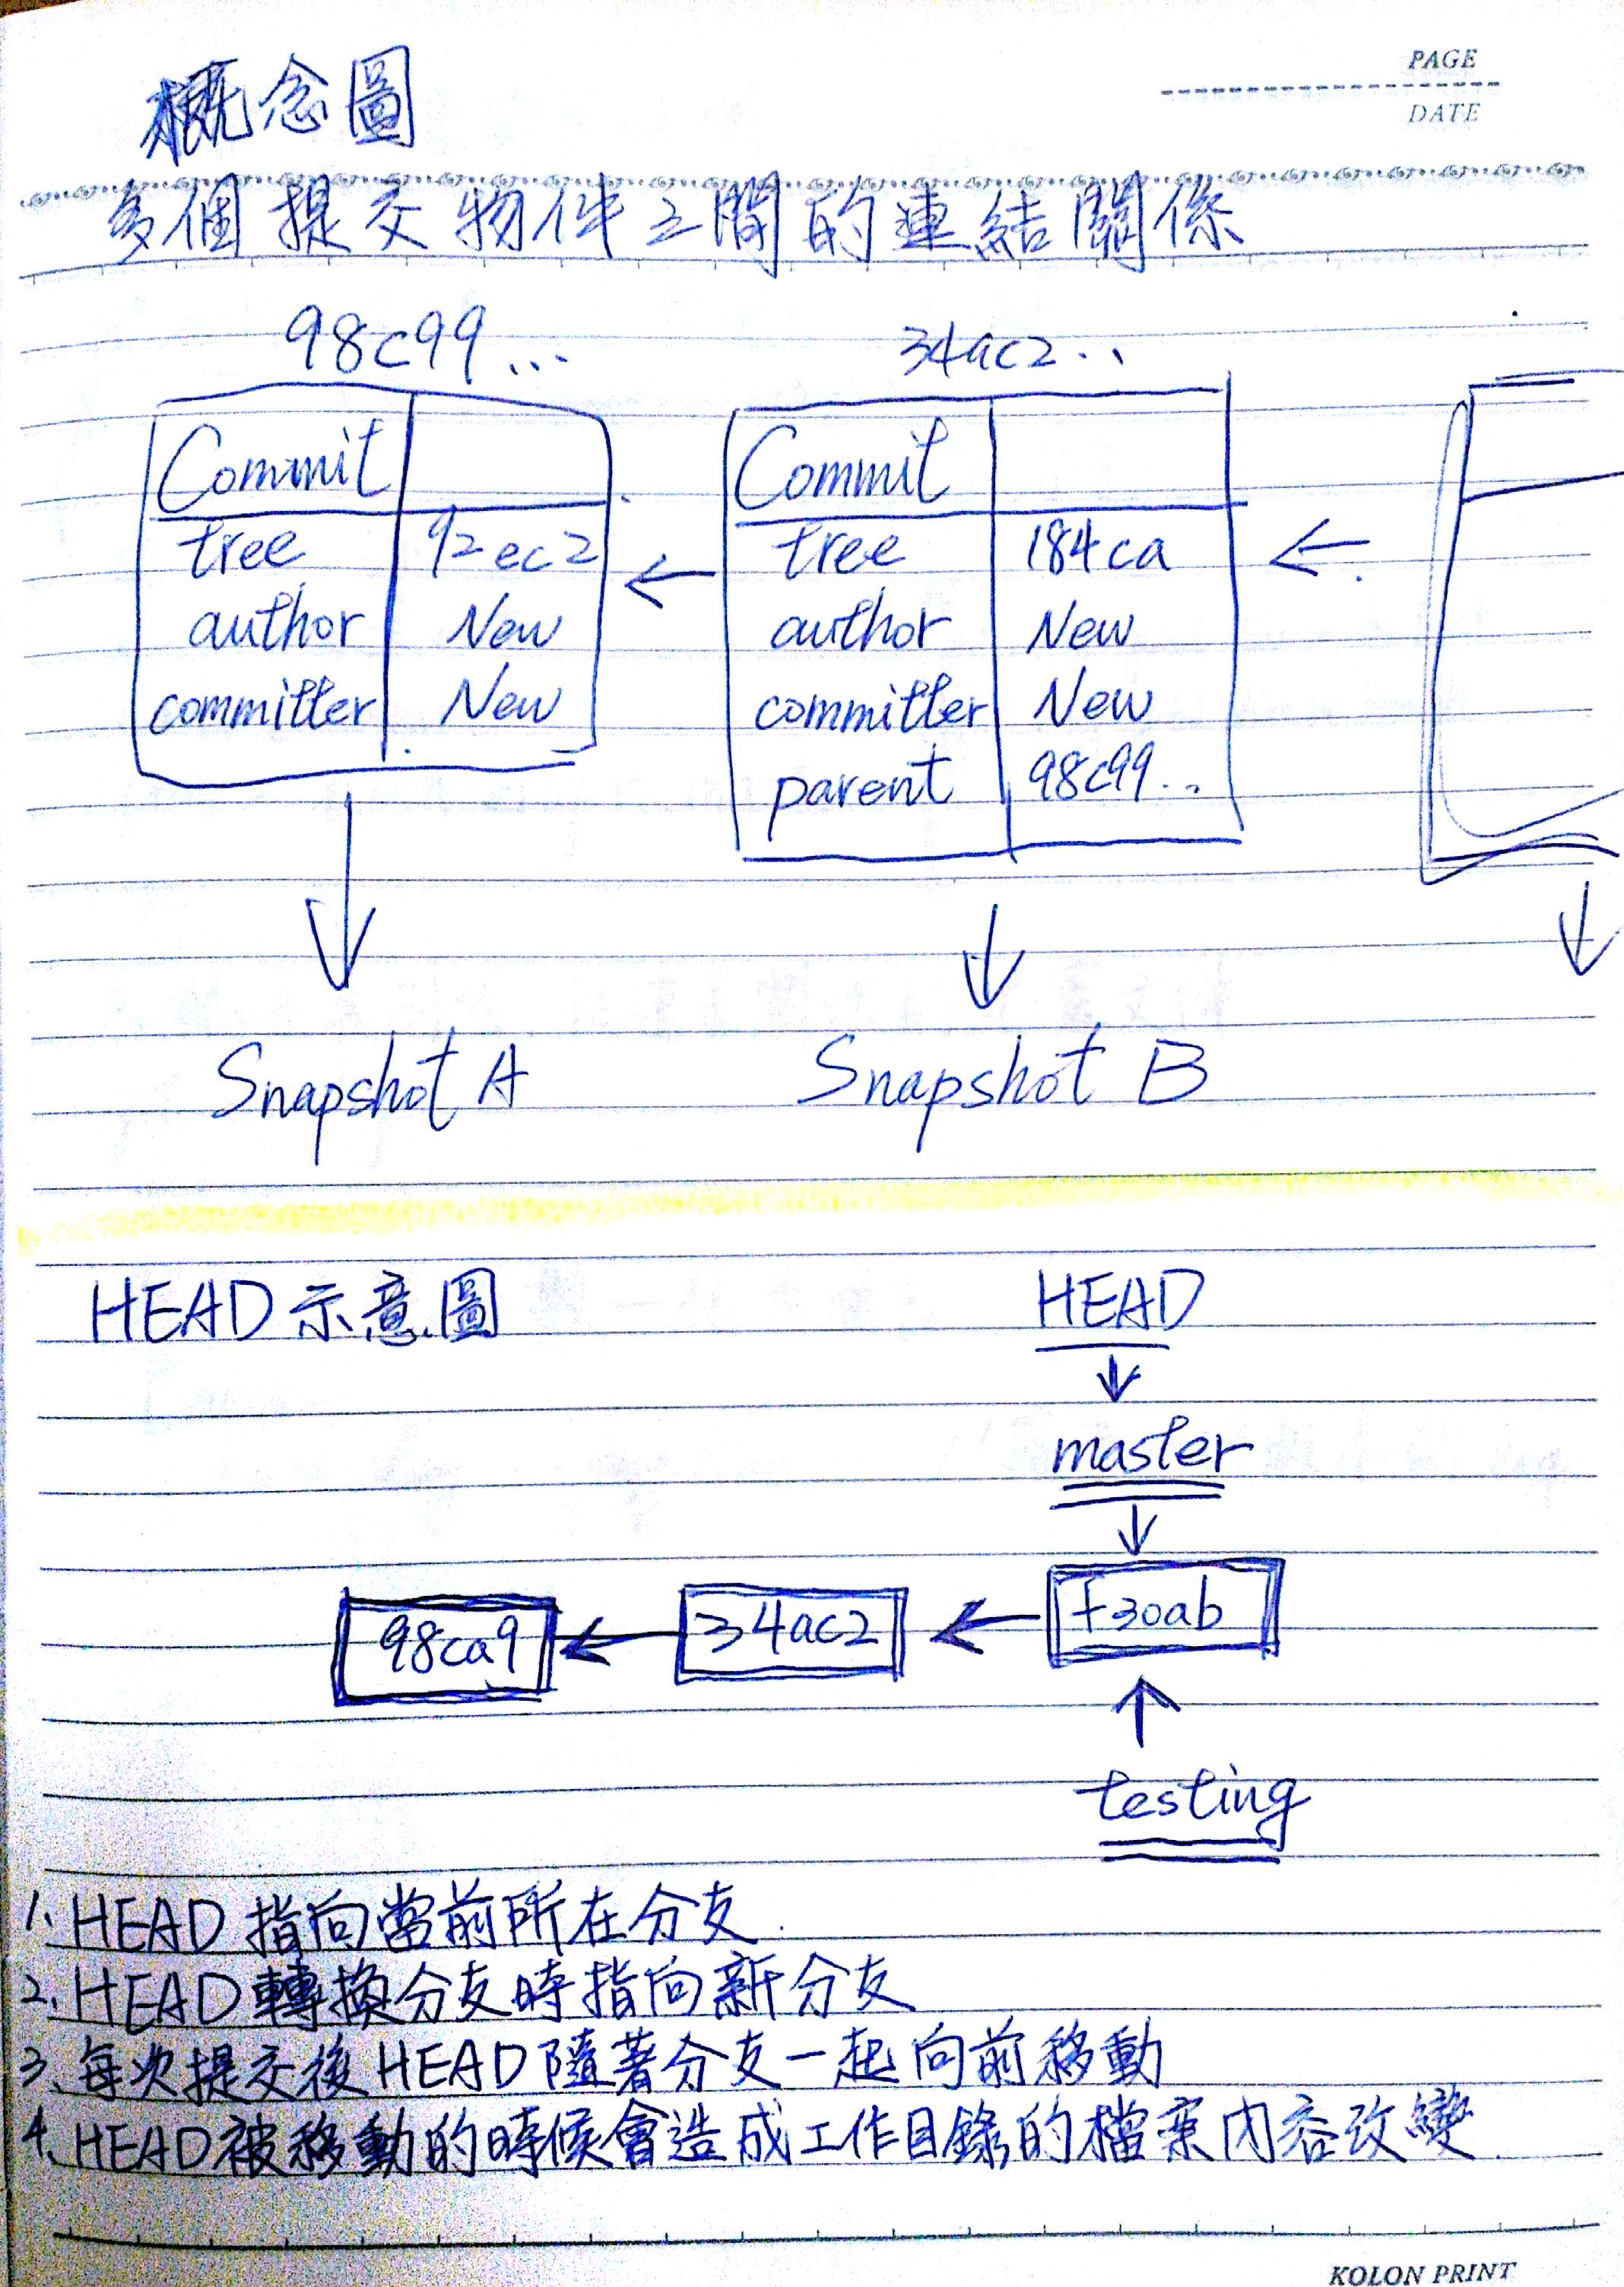 PAGE
DATE
概念圖
多個提交物件之間的連結關係
98c99... 34ac2..
Commit Commit
tree 92ec2 tree 184ca
author New author New
committer New committer New
parent 98c99..
Snapshot A Snapshot B
HEAD示意圖 HEAD
master
98ca9 34ac2 f30ab
testing
1. HEAD 指向當前所在分支.
2. HEAD 轉換分支時指向新分支
3. 每次提交後 HEAD 隨著分支一起向前移動
4. HEAD被移動的時候會造成工作目錄的檔案內容改變.
KOLON PRINT